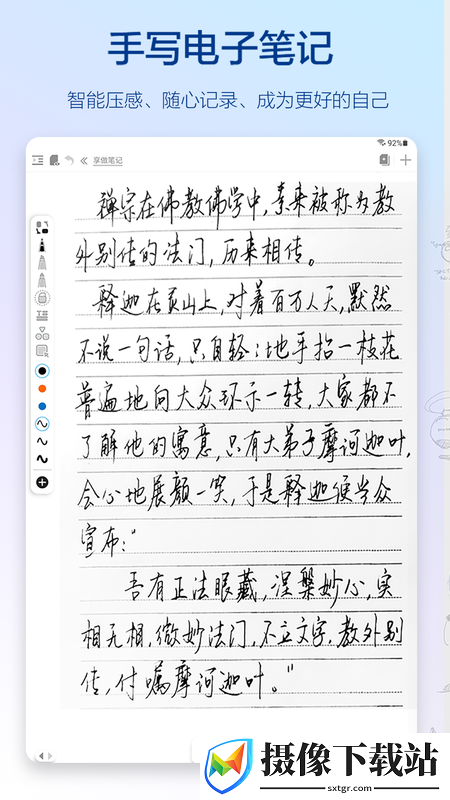 手写电子笔记
智能压感、随心记录、成为更好的自己
92%
享做笔记
禅宗在佛教佛学中,素来被称为教
外别传的法门,历来相传。
释迦在灵山上,对着百万人天,默然
不说一句话,只自轻轻地手拈一枝花
普遍地向大众环示一转,大家都不
了解他的寓意,只有大弟子摩诃迦叶,
会心地展颜一笑,于是释迦便当众
宣布:“
吾有正法眼藏,涅槃妙心,实
相无相,微妙法门,不立文字,教外别
传,付嘱摩诃迦叶。”
摄像下载站
sxtgr.com